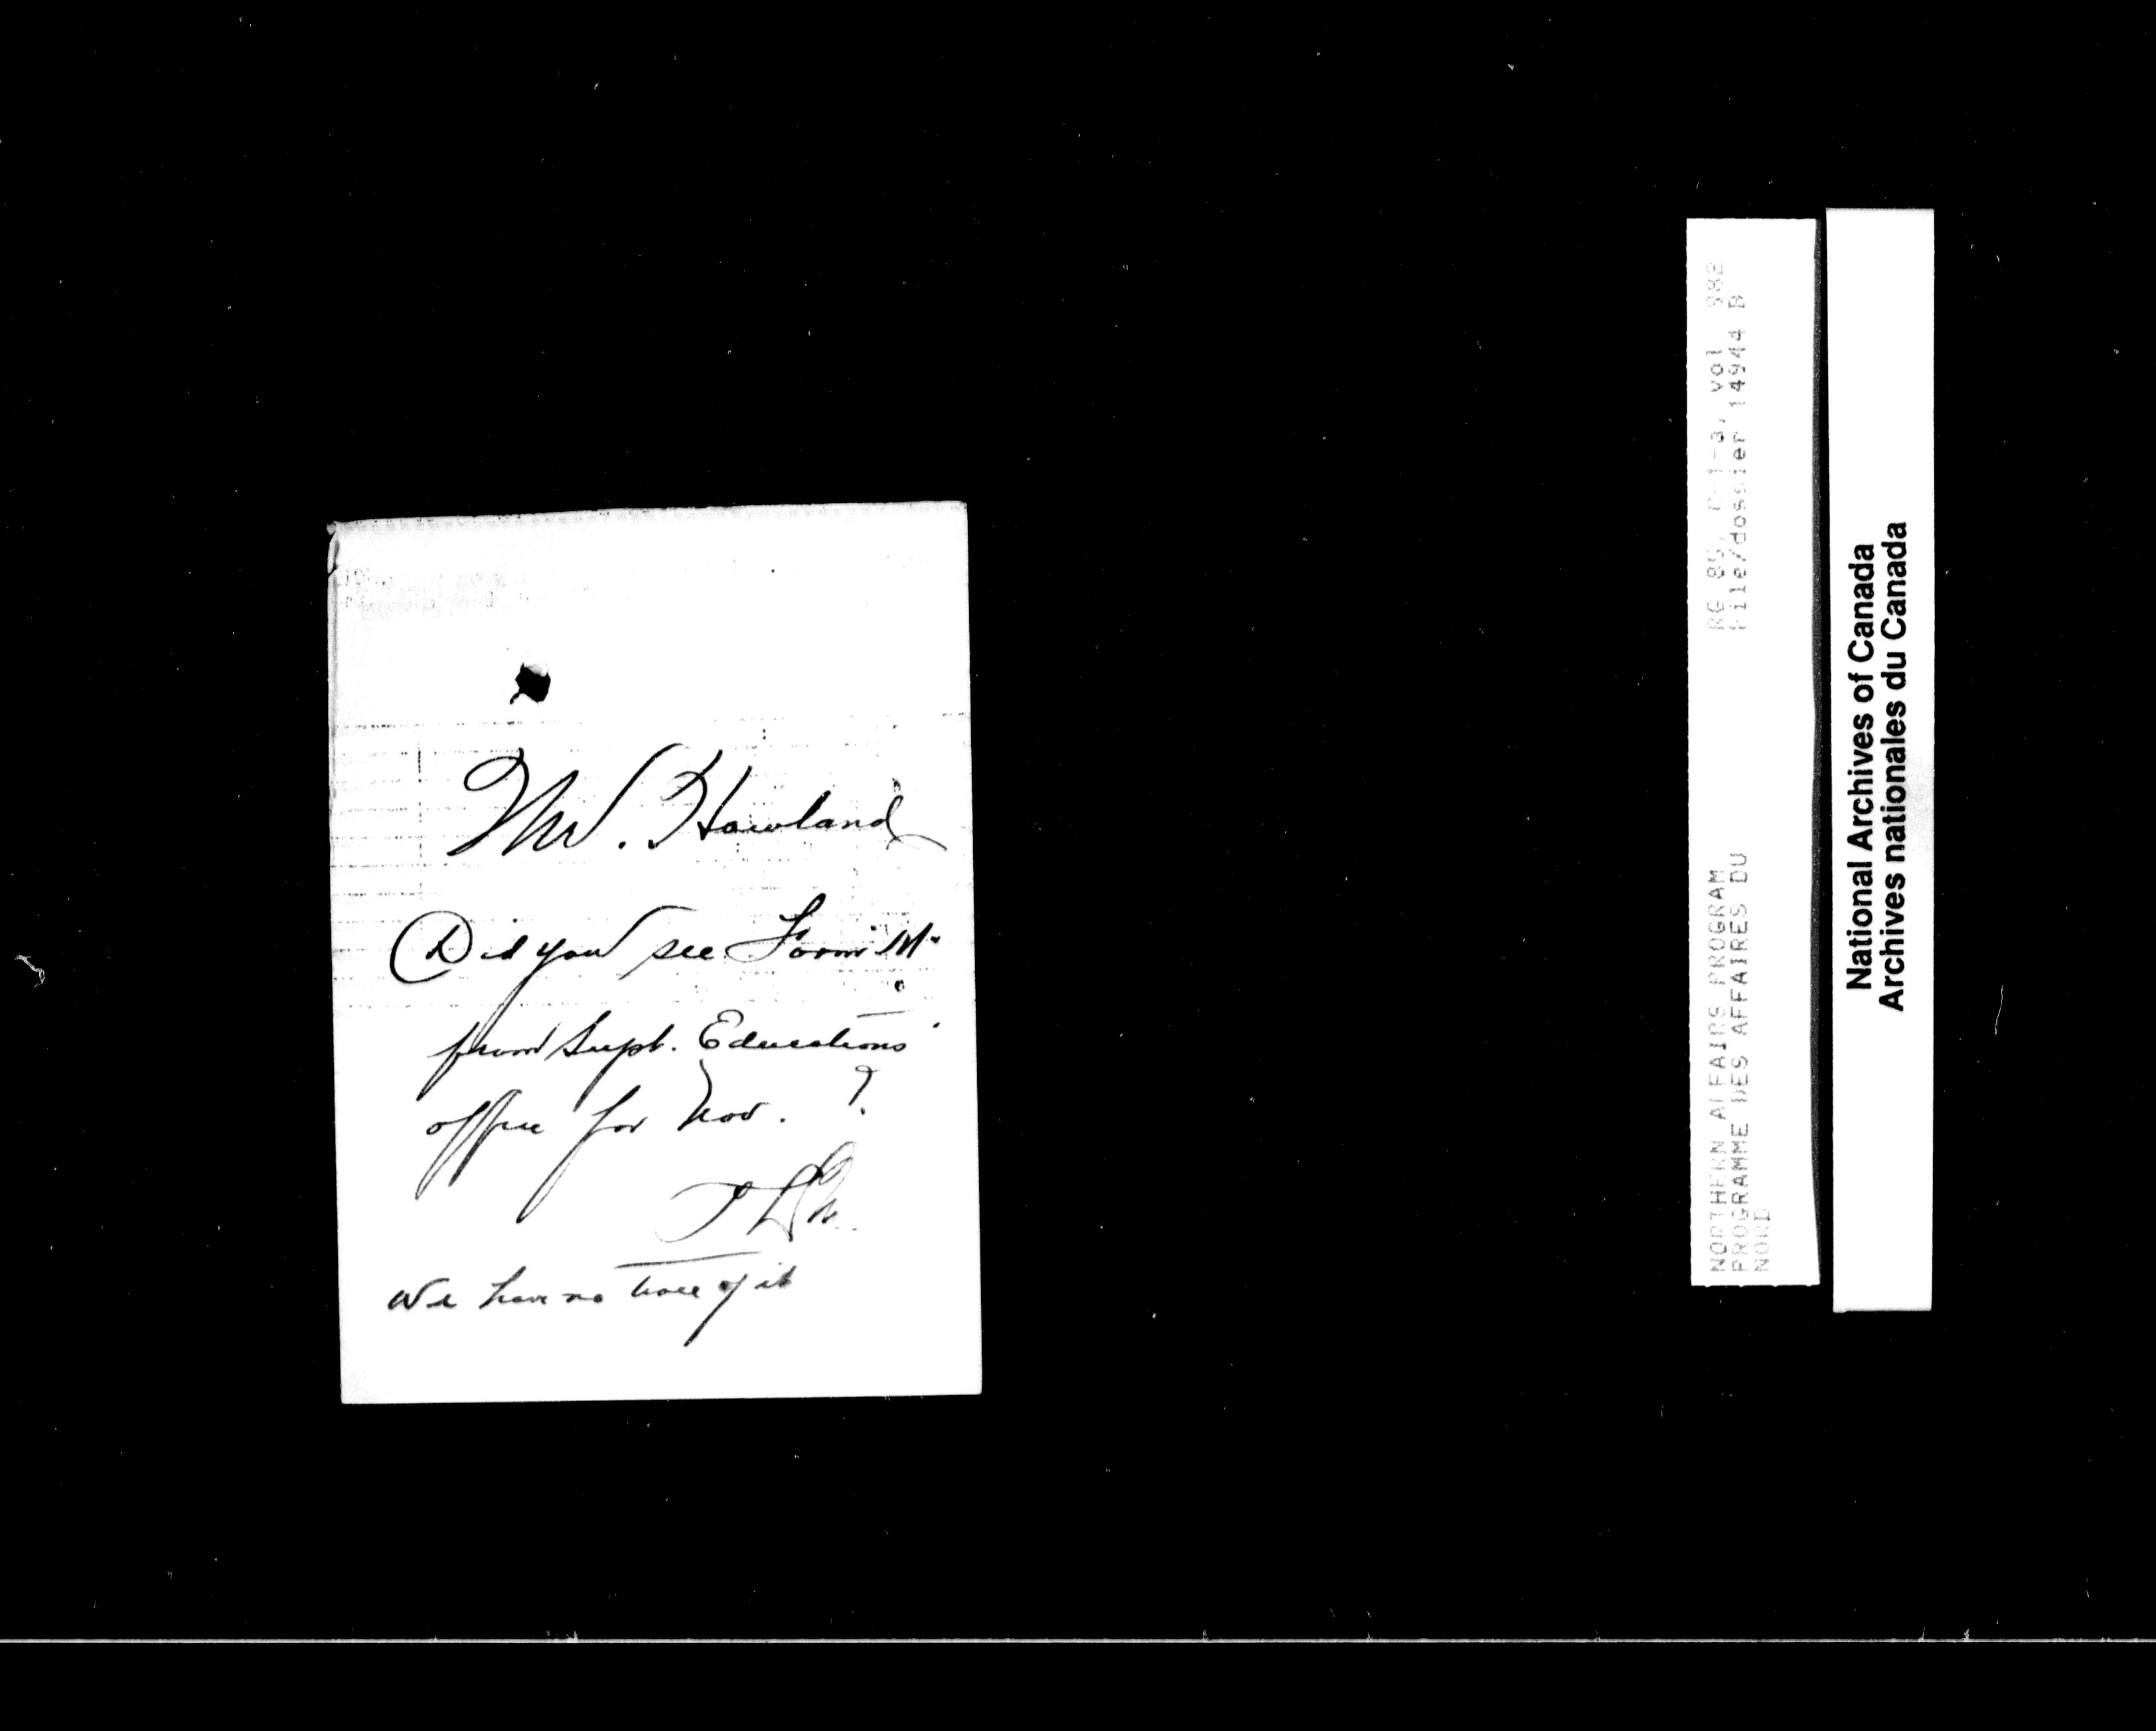 Mr. Howland
Did you see Form "M"
from Supt. Educations
office for Nov. ?
We have no trace of it
NORTHERN AFFAIRS PROGRAM
PROGRAMME DES AFFAIRES DU
NORD
RG 85, vol
File/dossier 14944 B
National Archives of Canada
Archives nationales du Canada